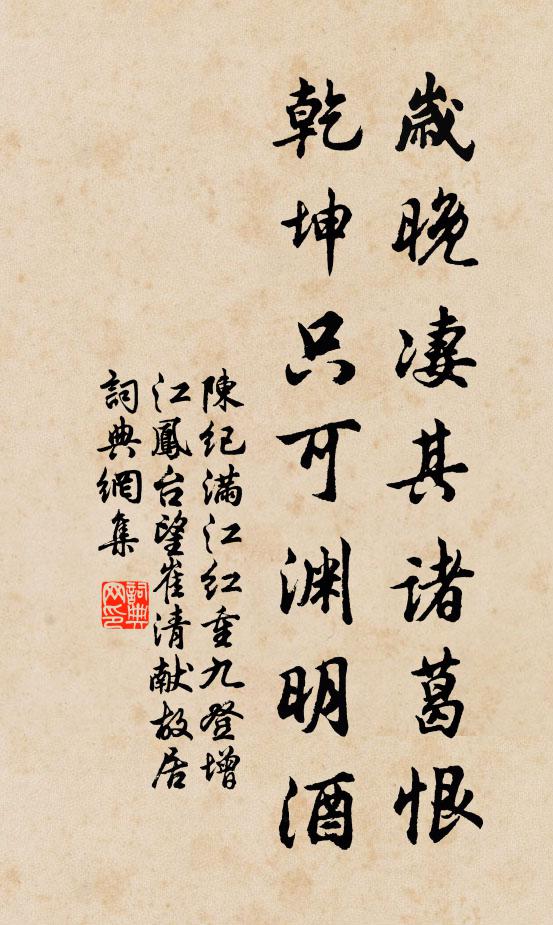 歲晚淒其諸葛恨
乾坤只可淵明酒
陳紀滿江紅重九登增
江鳳台望崔清献故居
詞典網集
詞典网印